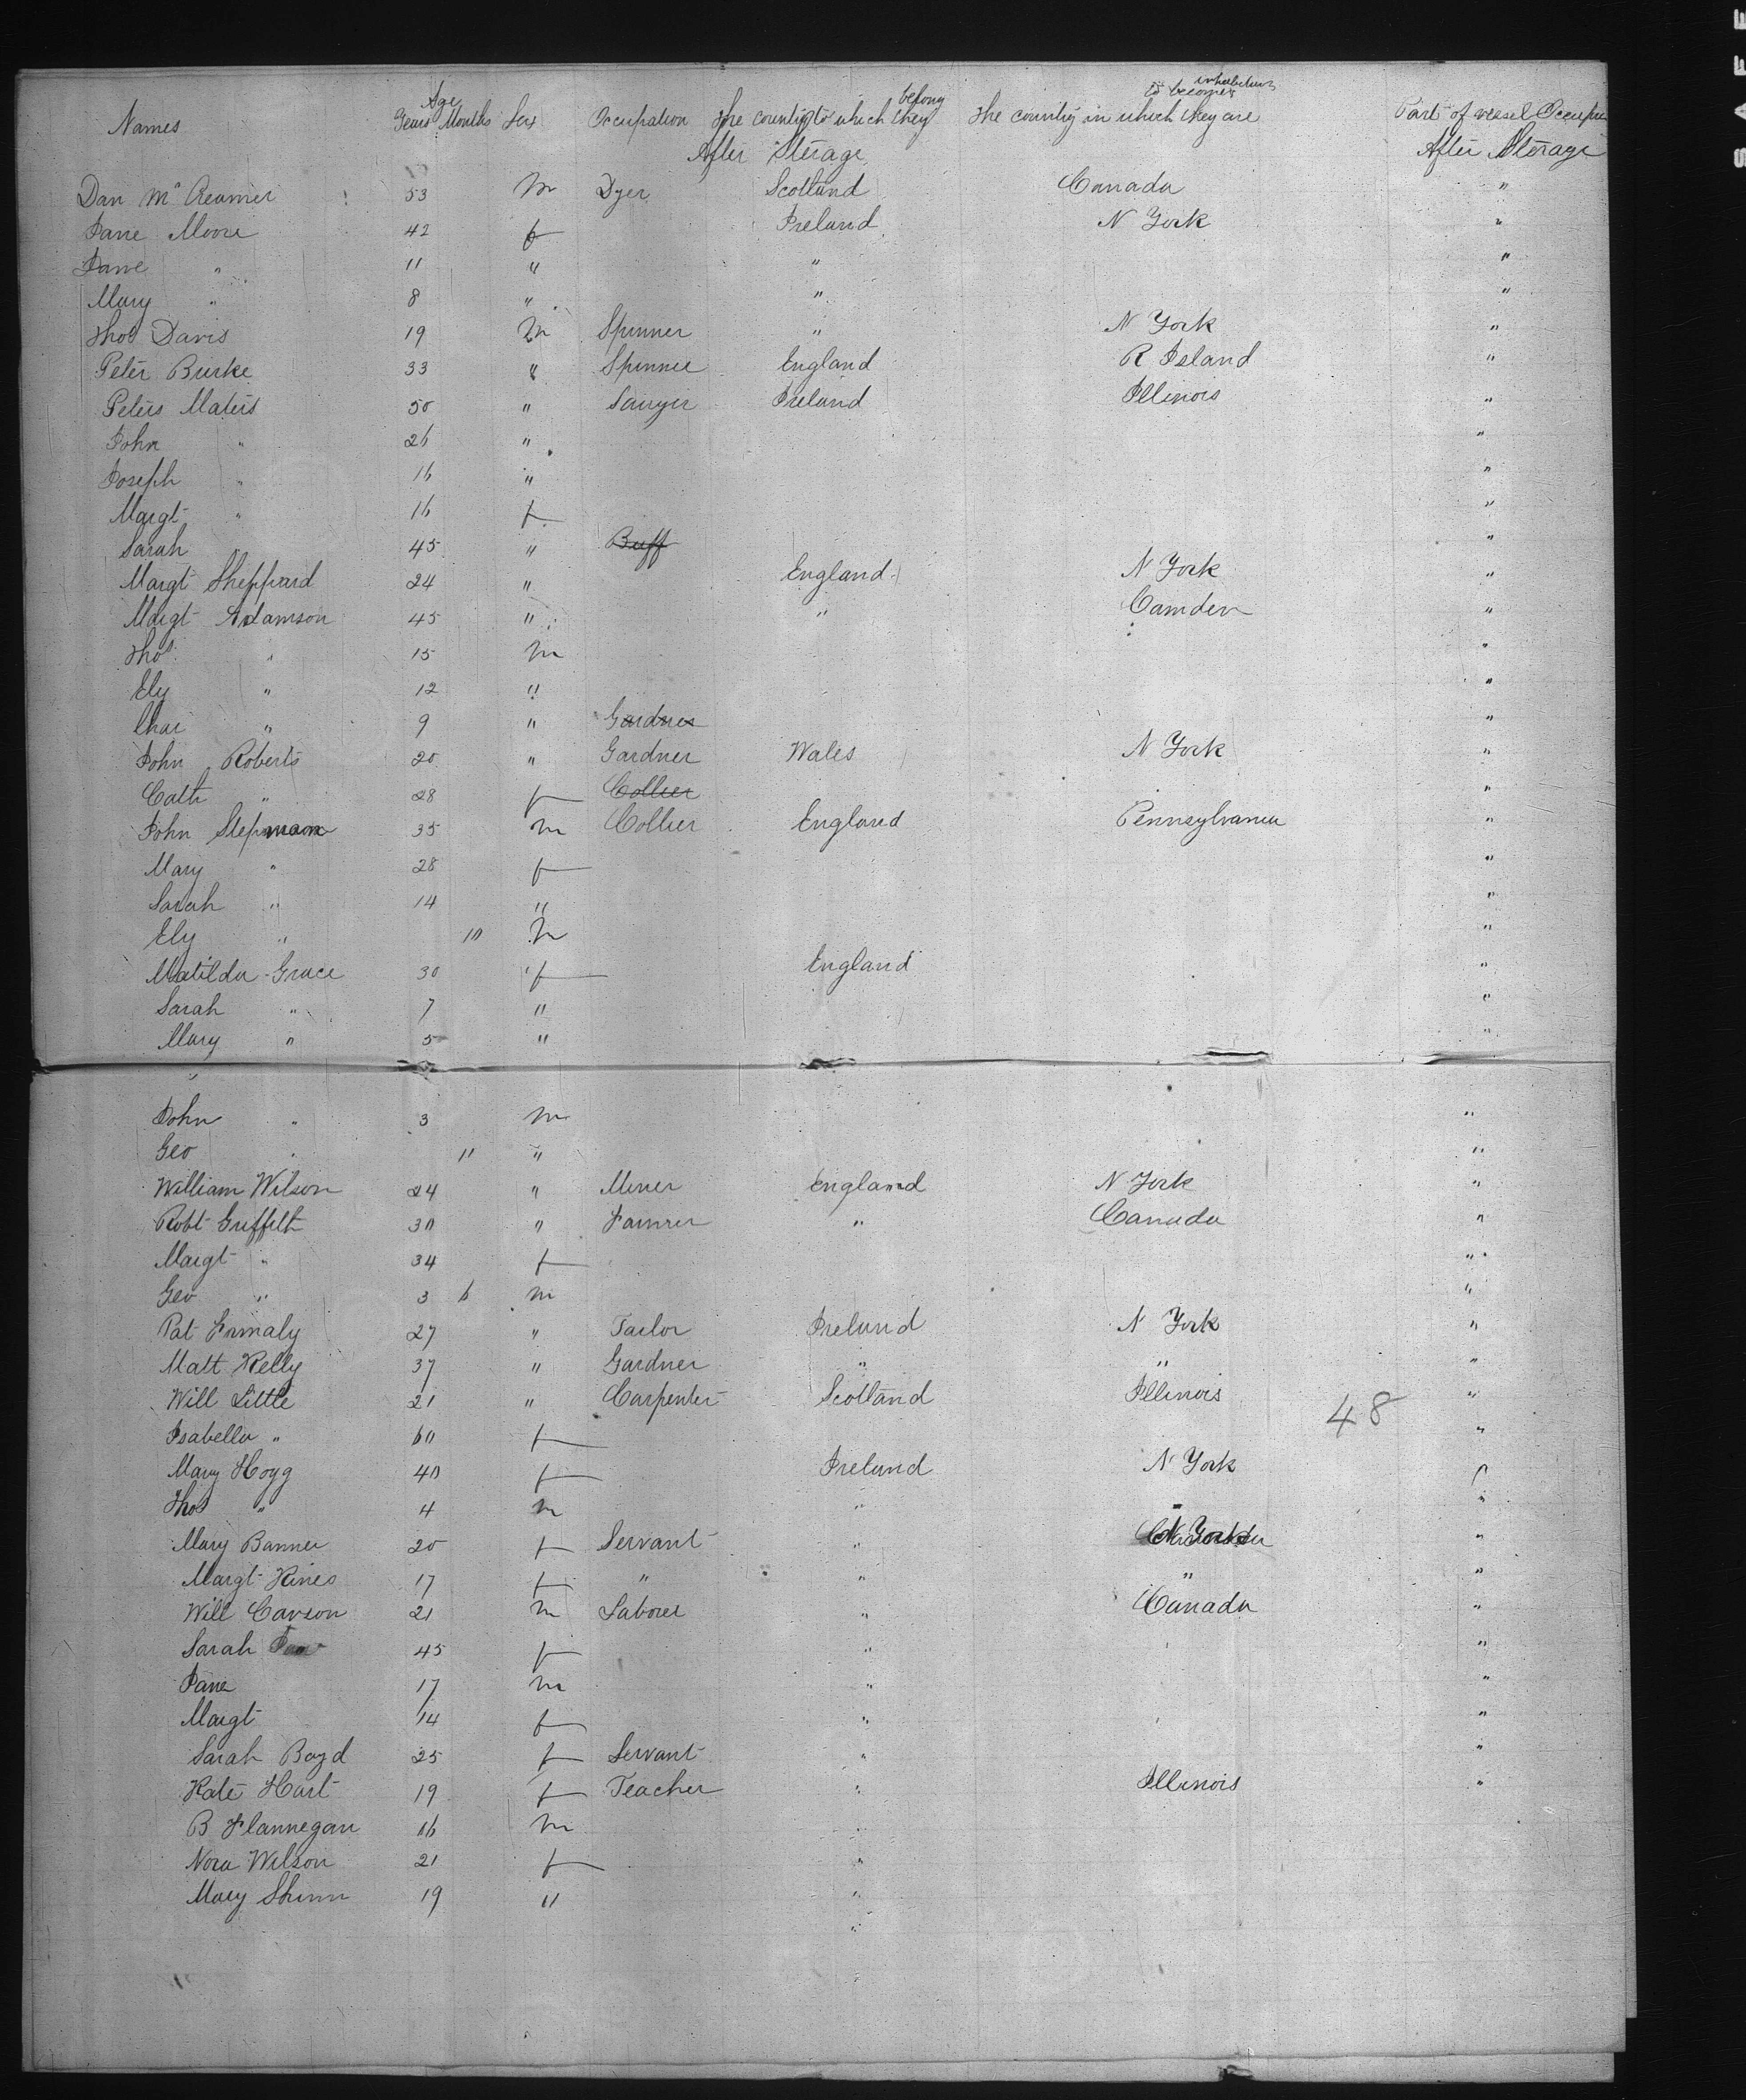 Names Age Years Months Sex Occupation The country to which they belong The country in which they are to become inhabitants Part of vessel Occupied
After Sterage After Sterage
Dan Mc Creamer 53 M Dyer Scotland Canada "
Jane Moore 42 f Ireland N York "
Jane " 11 " " "
Mary " 8 " " "
Thos Davis 19 M Spinner " N York "
Peter Burke 33 " Spinner England R Island "
Peters Maters 50 " Sawyer Ireland Illinois "
John " 26 " "
Joseph " 16 " "
Margt " 16 f "
Sarah 45 " Buff "
Margt Sheppard 24 " England N York "
Margt Adamson 45 " " Camden "
Thos " 15 M "
Ely " 12 " "
Char " 9 " Gardner "
John Roberts 20 " Gardner Wales N York "
Cath " 28 f Collier "
John Stepman 35 M Collier England Pennsylvania "
Mary " 28 f "
Sarah " 14 " "
Ely " 10 M "
Matilda Grace 30 f England "
Sarah " 7 " "
Mary " 5 " "
John " 3 M "
Geo " 11 " "
William Wilson 24 " Miner England N York "
Robt Griffith 30 " Farmer " Canada "
Margt " 34 f "
Geo " 3 6 M "
Pat Ermaly 27 " Tailor Ireland N York "
Matt Kelly 37 " Gardner " " "
Will Little 21 " Carpenter Scotland Illinois "
48
Isabella " 60 f "
Mary Hogg 40 f Ireland N York
Thos " 4 M " "
Mary Banner 20 f Servant " N York "
Margt Hines 17 f " " " "
Will Carson 21 M Laborer " Canada "
Sarah 45 f " "
Jane 17 M " "
Margt 14 f " "
Sarah Boyd 25 f Servant " "
Kate Hart 19 f Teacher " Illinois "
B Flannegan 16 M "
Nora Wilson 21 f "
Mary Shinn 19 " "
"